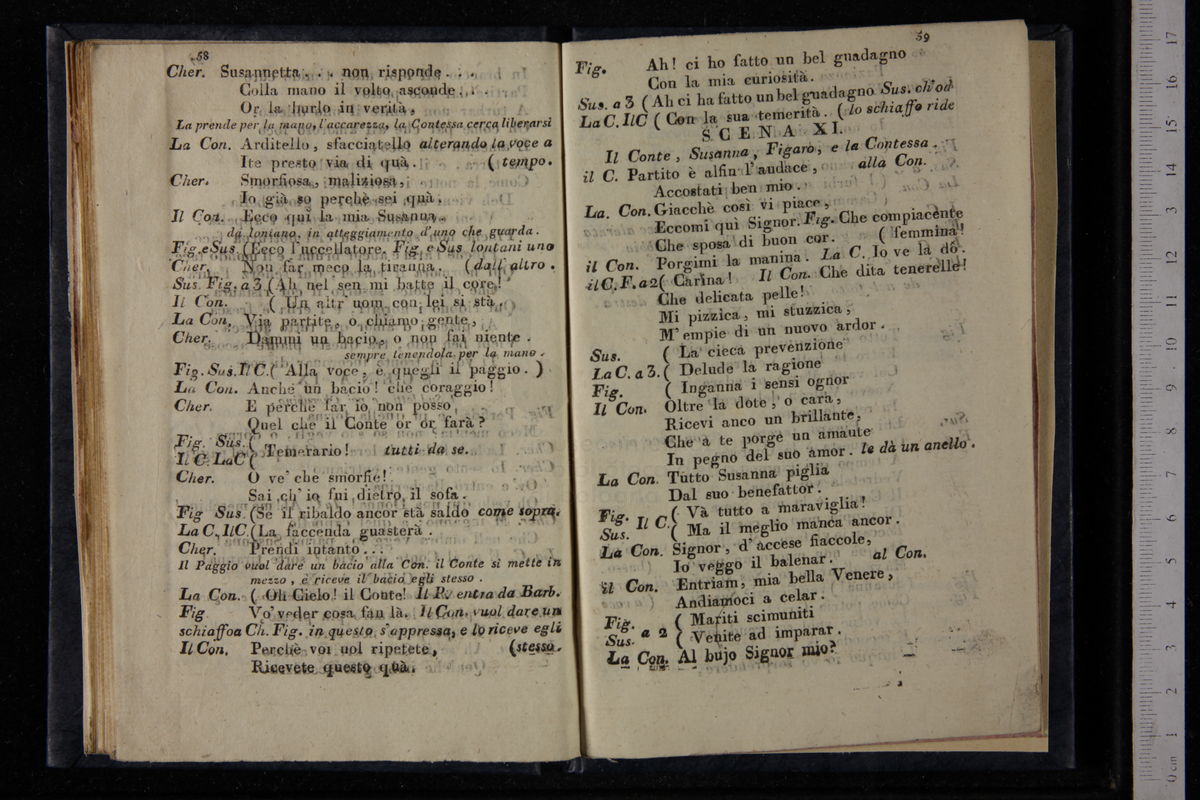 58
Cher. Susannetta . . . non risponde . . .
Colla mano il volto asconde . . .
Or la burlo in verità,
La prende per la mano, l'accarezza, la Contessa cerca liberarsi
La Con. Arditello, sfacciatello alterando la voce a
Ite presto via di quà. ( tempo.
Cher. Smorfiosa, maliziosa,
Io già so perchè sei quà.
Il Con. Ecco quì la mia Susanna.
da lontano, in atteggiamento d'uno che guarda.
Fig. e Sus. (Ecco l'uccellatore. Fig. e Sus. lontani uno
Cher. Non far meco la tiranna. (dall' altro.
Sus. Fig. a 3 (Ah nel sen mi batte il core!
Il Con. ( Un altr uom con lei si stà.
La Con. Via partite, o chiamo gente,
Cher. Dammi un bacio, o non fai niente.
sempre tenendola per la mano.
Fig. Sus. Il C.( Alla voce, è quegli il paggio. )
La Con. Anche un bacio! che coraggio!
Cher. E perchè far io non posso,
Quel che il Conte or or farà?
Fig. Sus. (
Il C. La C ( Temerario! tutti da se.
Cher. O ve' che smorfie!
Sai ch' io fui dietro il sofa.
Fig Sus. (Se il ribaldo ancor stà saldo come sopra.
La C. Il C.(La faccenda guasterà.
Cher. Prendi intanto...
Il Paggio vuol dare un bacio alla Con. il Conte si mette in
mezzo, e riceve il bacio egli stesso.
La Con. ( Oh Cielo! il Conte! Il P. entra da Barb.
Fig Vo' veder cosa fan là. Il Con. vuol dare un
schiaffo a Ch. Fig. in questo s'appressa, e lo riceve egli
Il Con. Perchè voi uol ripetete, (stesso.
Ricevete questo quà.
59
Fig. Ah! ci ho fatto un bel guadagno
Con la mia curiosità.
Sus. a 3 ( Ah ci ha fatto un bel guadagno Sus. ch'od
La C. Il C ( Con la sua temerità. ( lo schiaffo ride
SCENA XI.
Il Conte, Susanna, Figaro, e la Contessa.
il C. Partito è alfin l'audace, alla Con.
Accostati ben mio.
La. Con. Giacchè così vi piace,
Eccomi quì Signor. Fig. Che compiacente
Che sposa di buon cor. ( femmina!
il Con. Porgimi la manina. La C. Io ve la dò.
il C. F. a 2( Carina! Il Con. Che dita tenerelle!
Che delicata pelle!
Mi pizzica, mi stuzzica,
M' empie di un nuovo ardor.
Sus. ( La cieca prevenzione
La C. a 3. ( Delude la ragione
Fig. ( Inganna i sensi ognor
Il Con. Oltre la dote, o cara,
Ricevi anco un brillante,
Che a te porge un amante
In pegno del suo amor. le dà un anello.
La Con. Tutto Susanna piglia
Dal suo benefattor.
Fig. Il C. ( Và tutto a maraviglia!
Sus. ( Ma il meglio manca ancor.
La Con. Signor, d' accese fiaccole,
Io veggo il balenar. al Con.
il Con. Entriam, mia bella Venere,
Andiamoci a celar.
Fig. a 2 ( Mariti scimuniti
Sus. ( Venite ad imparar.
La Con. Al bujo Signor mio?